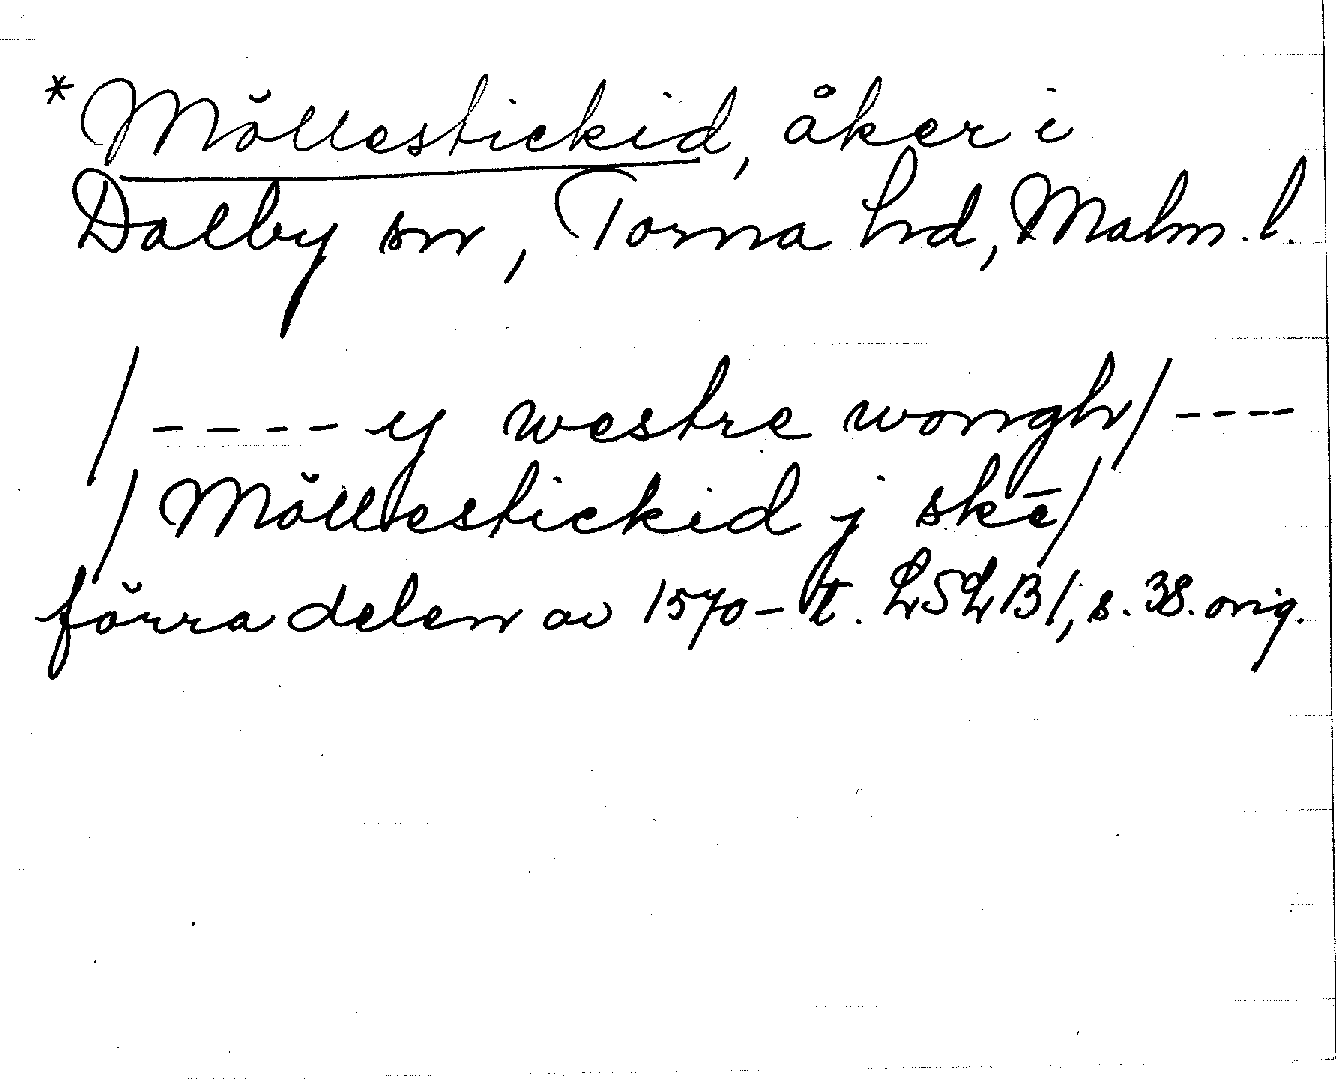 *Möllestickid, åker i
Dalby sn, Torna hd, Malm. l.
/ - - - - y westre wongh / - - - -
/ Möllestickid j skē /
förra delen av 1570-t. LSLB 1, s. 38. orig.